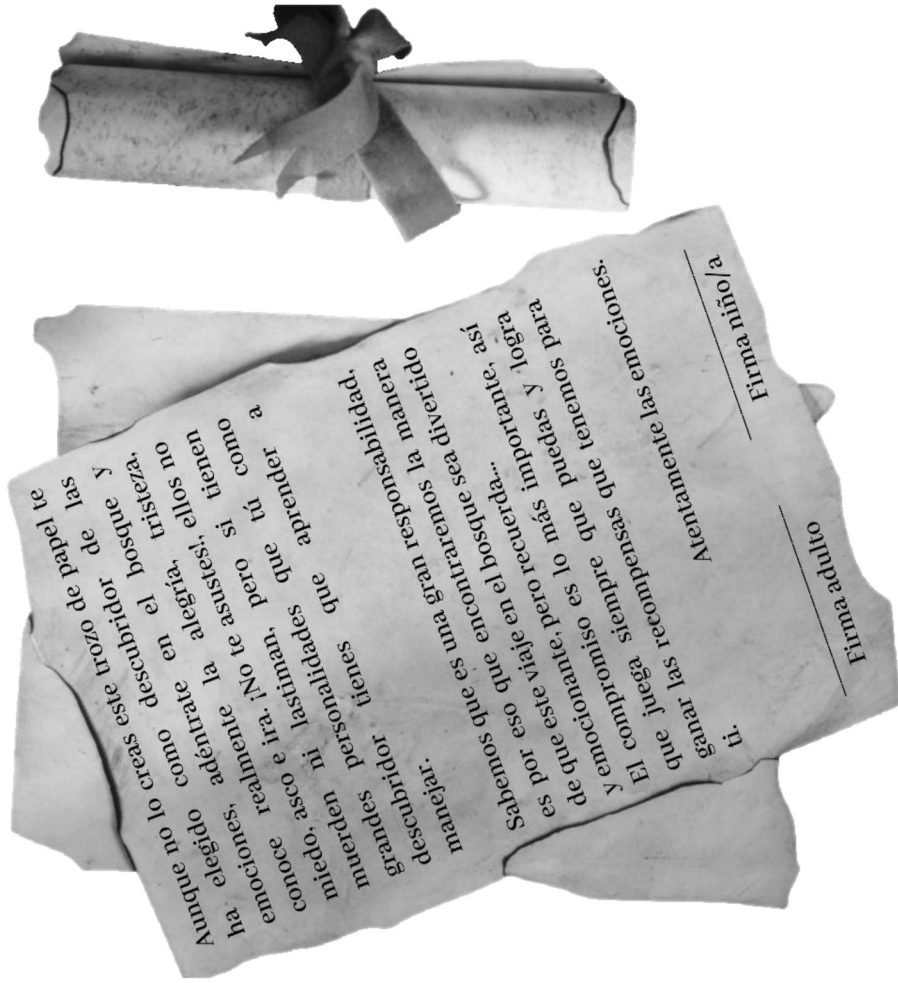 Aunque no lo creas este trozo de papel te
ha elegido como descubridor de las
emociones, adéntrate en el bosque y
conoce realmente la alegría, tristeza,
miedo, asco e ira. ¡No te asustes!, ellos no
muerden ni lastiman, pero si tienen
grandes personalidades que tú como
descubridor tienes que aprender a
manejar.
Sabemos que es una gran responsabilidad,
es por eso que encontraremos la manera
de que este viaje en el bosque sea divertido
y emocionante, pero recuerda...
El compromiso es lo más importante, así
que juega siempre que puedas y logra
ganar las recompensas que tenemos para
ti.
Atentamente las emociones.
Firma adulto
Firma niño/a